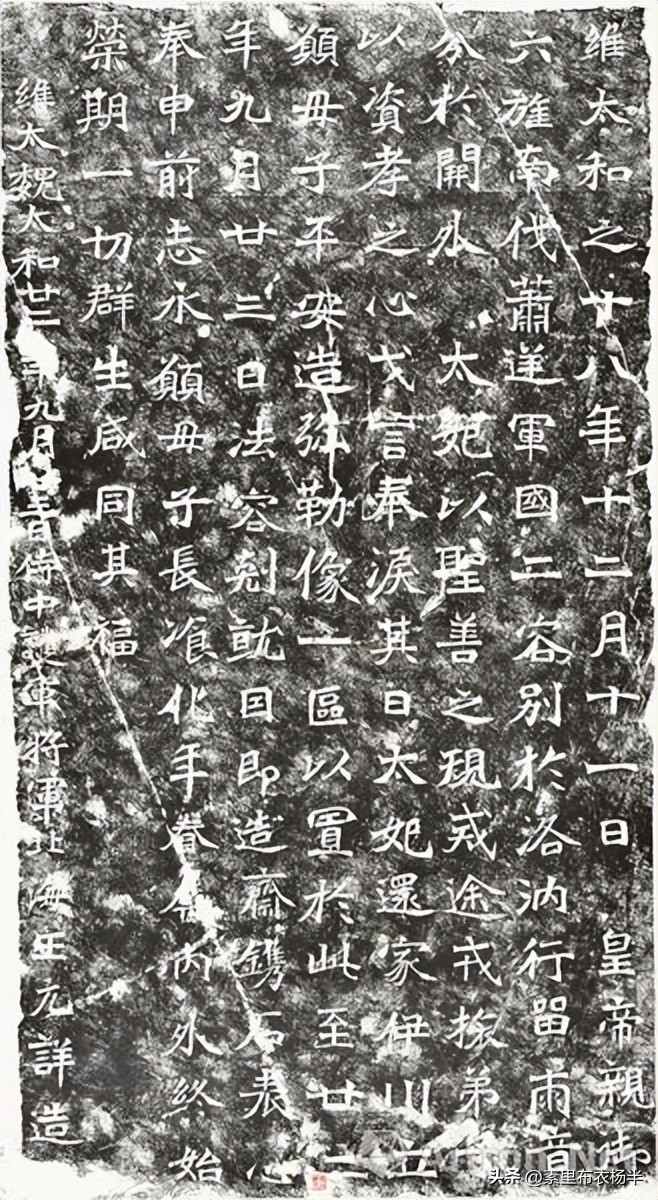 維太和之十八年十二月十一日 皇帝親御
六旌南伐蕭逆軍國二容別於洛汭行留兩音
分於開外 太妃以聖善之規戒途戎旅弟
以資孝之心戈言奉淚其日太妃還家伊川立
願毋子平安造弥勒像一區以置於此至廿二
年九月廿三日法容剋就因即造齋鐫石表心
奉申前志永願毋子長飡化年眷屬內外終始
榮期一切群生咸同其福
維太魏太和廿二年九月廿三日侍中護軍將軍北海王元詳造
头条 @素里布衣杨半